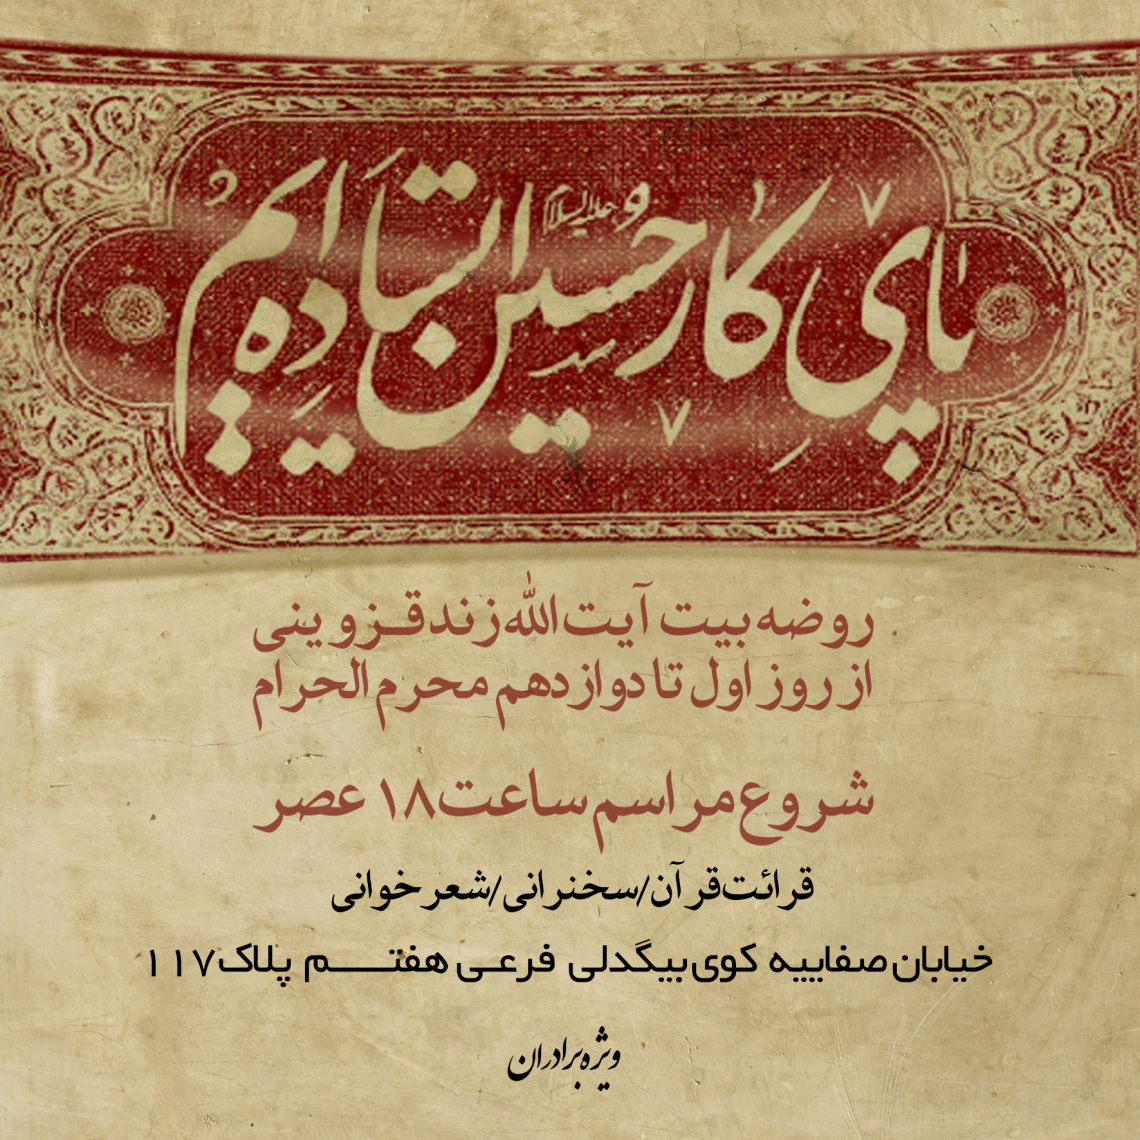 پای کار حسین علیه‌السلام ایستاده‌ایم
روضه بیت آیت‌الله زند قـزوینی
از روز اول تا دوازدهم محرم الحرام
شروع مراسم ساعت ۱۸ عصر
قرائت قرآن/سخنرانی/شعرخوانی
خیابان صفاییه کوی بیگدلی فرعـی هفتـــم پلاک ۱۱۷
ویژه برادران